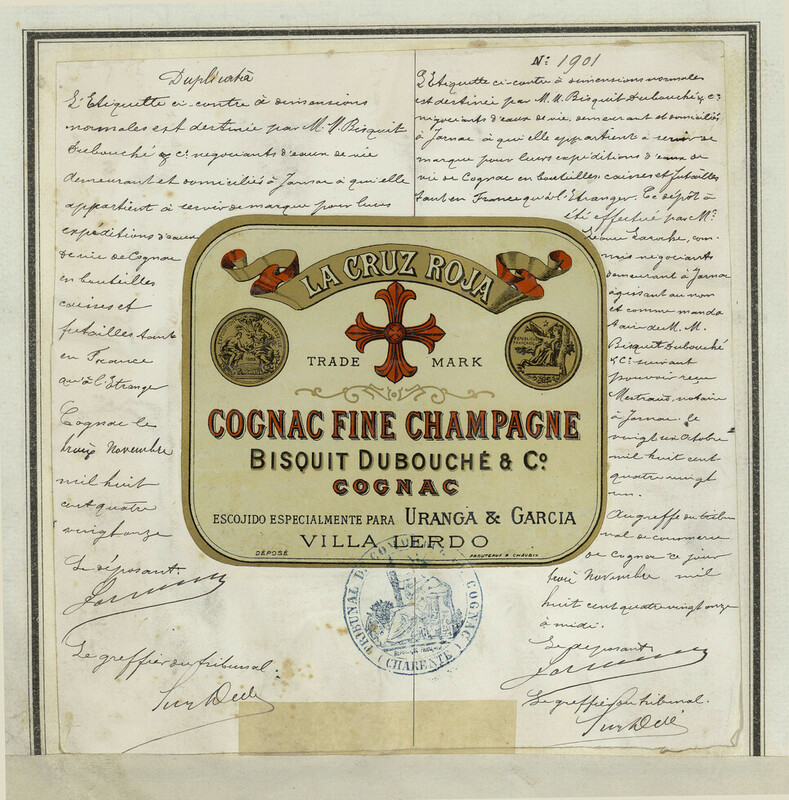 Duplicata
L'Etiquette ci-contre à dimensions
normales est destinée par M. M. Bisquit
Dubouché & Cie négociants d'eaux de vie
demeurant et domiciliés à Jarnac à qui elle
appartient à servir de marque pour leurs
expéditions d'eaux
de vie de Cognac
en bouteilles
caisses et
futailles tant
en France
qu'à l'Etranger
Cognac le
trois Novembre
mil huit
cent quatre
vingt onze
Le déposant.
Le greffier du tribunal.
N: 1901
L'Etiquette ci-contre à dimensions normales
est destinée par M. M. Bisquit Dubouché & Cie
négociants d'eaux de vie, demeurant et domiciliés
à Jarnac à qui elle appartient à servir de
marque pour leurs expéditions d'eaux de
vie de Cognac en bouteilles, caisses et futailles
tant en France qu'à l'Etranger. Ce dépôt à
été effectué par Mr
Laroche, com-
mis négociants
demeurant à Jarnac
agissant au nom
et comme manda
taire de M. M.
Bisquit Dubouché
& Cie suivant
pouvoir reçu
Mestraud, notaire
à Jarnac. le
vingt un octobre
mil huit cent
quatre vingt
un.
Au greffe du tribu
nal de commerce
de Cognac ce jour
trois Novembre mil
huit cent quatre vingt onze
à midi.
Le déposant
Le greffier du tribunal.
LA CRUZ ROJA
TRADE MARK
COGNAC FINE CHAMPAGNE
BISQUIT DUBOUCHÉ & Co.
COGNAC
ESCOJIDO ESPECIALMENTE PARA URANGA & GARCIA
VILLA LERDO
DÉPOSÉ
TRIBUNAL DE COMMERCE DE COGNAC
(CHARENTE)